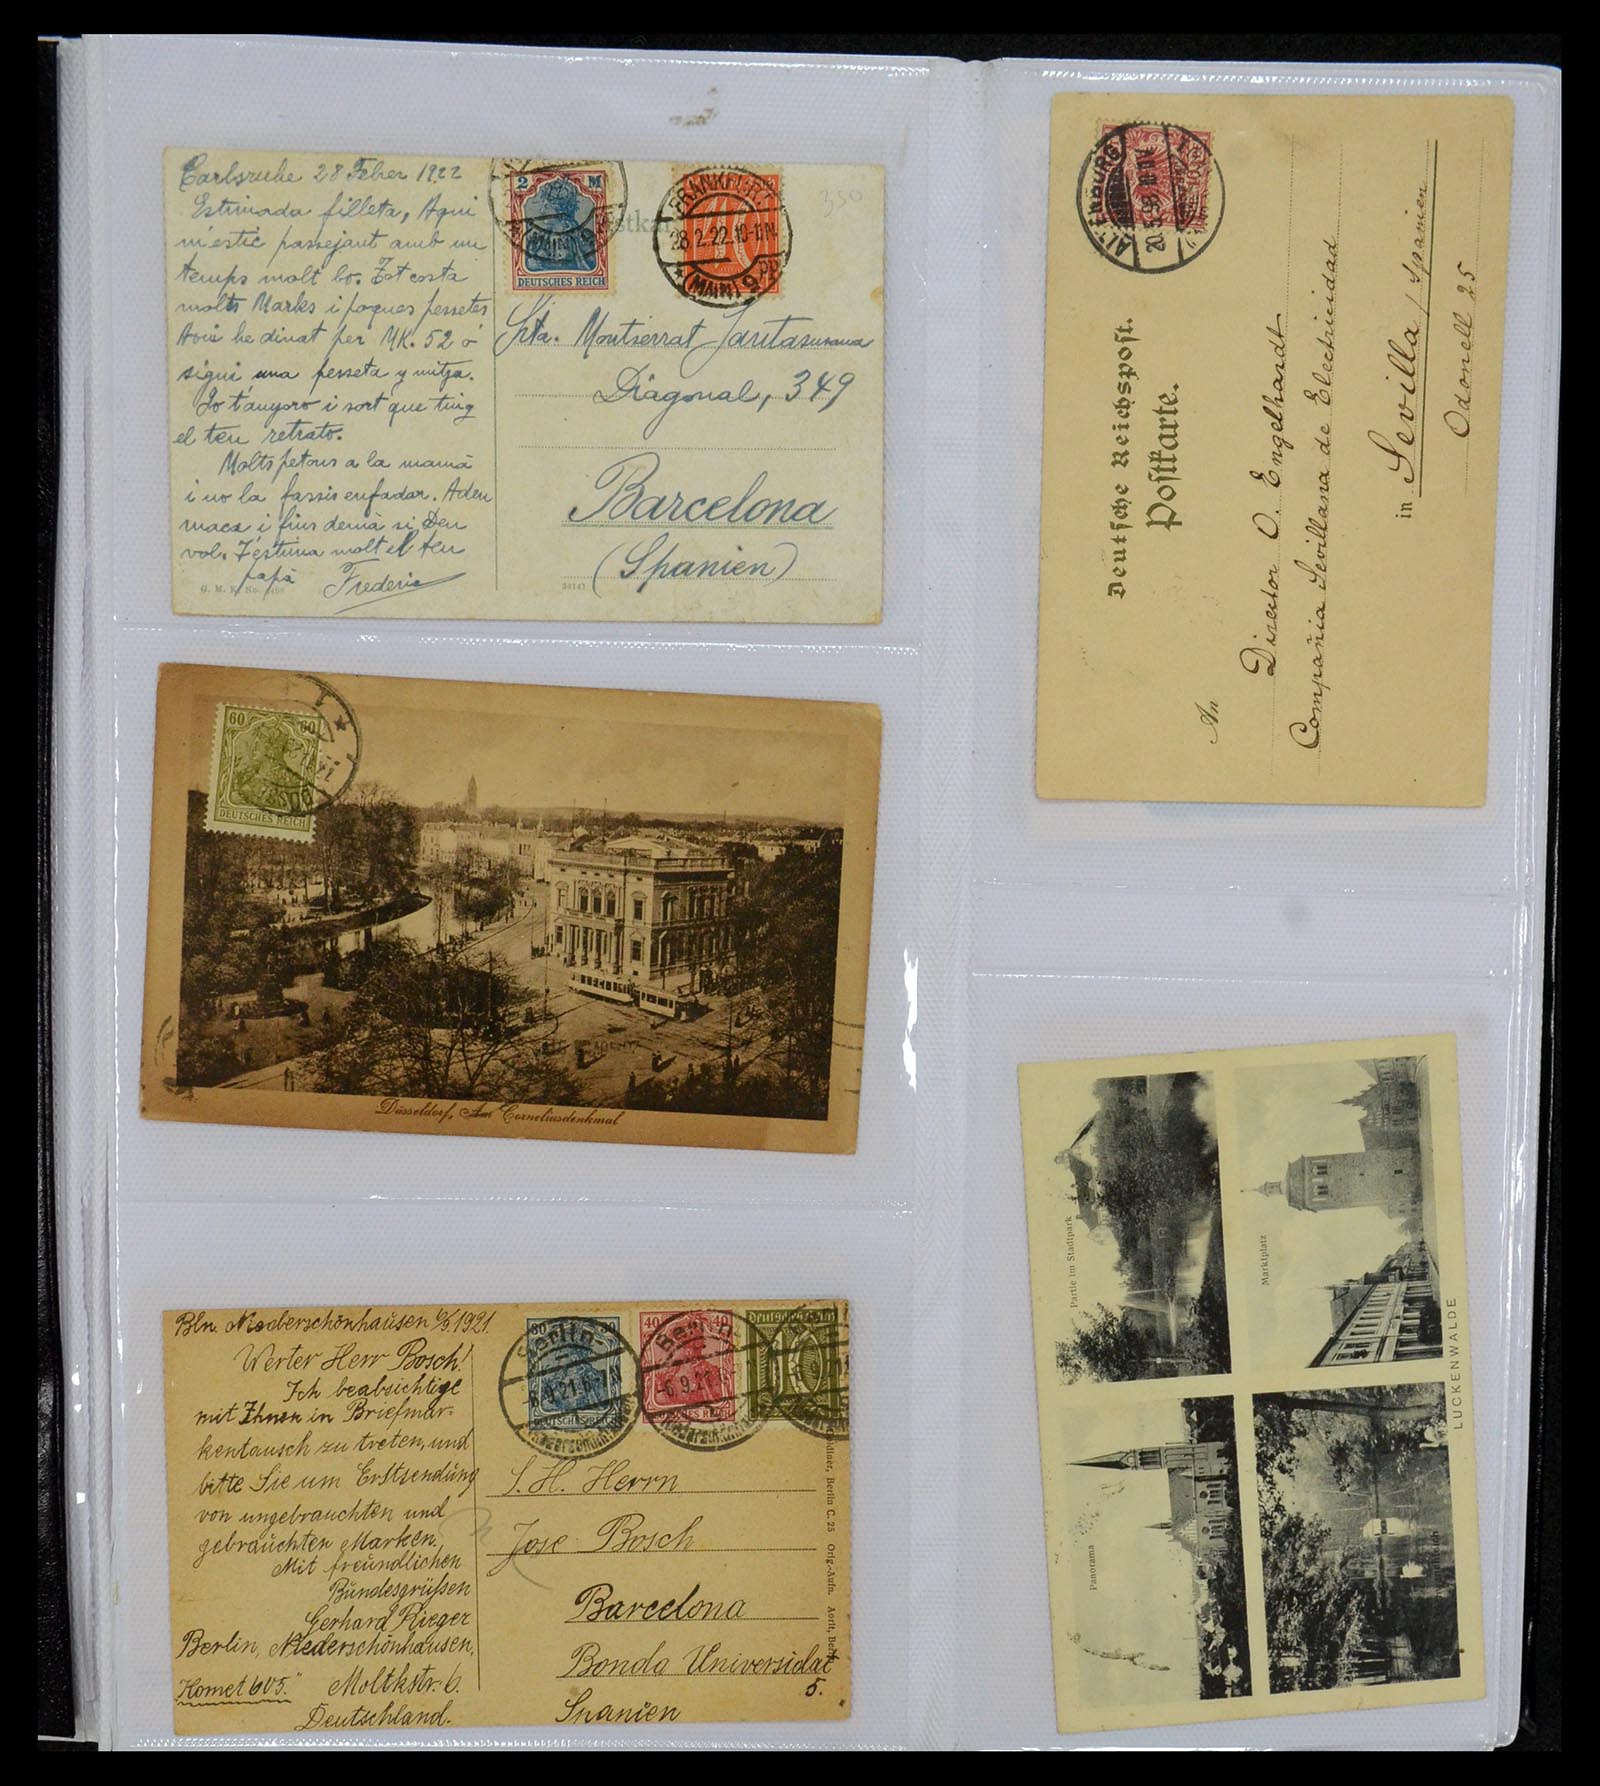 Carlsruhe 28 Febrer 1922
Estimada filleta, Aqui
m'estic passejant amb un
temps molt bo. Tot costa
molts Marks i poques pessetes
Avui he dinat per MK. 52 ó
sigui una pesseta y mitja.
Jo t'anyoro i sort que ting
el teu retrato.
Molts petons a la mamà
i no la fassis enfadar. Adeu
maca i fins demà si Deu
vol. T'estima molt el teu
papà Frederic
G. M. K. No.
2 M
DEUTSCHES REICH
(MAIN) 9
FRANKFURT
28.2.22.10-11N.
* (MAIN) 9
350
Srta. Montserrat Santasusana
Diagonal, 349
Barcelona
(Spanien)
30141
60 60
DEUTSCHES REICH
Düsseldorf, Am Corneliusdenkmal
Bln. Niederschönhausen 6/9.1921.
Werter Herr Bosch!
Ich beabsichtige
mit Ihnen in Briefmar-
kentausch zu treten, und
bitte Sie um Erstsendung
von ungebrauchten und
gebrauchten Marken.
Mit freundlichen
Bundesgrüssen
Gerhard Rieger
Berlin, Niederschönhausen,
"Komet 605." Moltkstr. 6.
Deutschland.
30 30
DEUTSCHES REICH
Berlin-
-6.9.21.6-7
40 40
DEUTSCHES REICH
Berlin-
-6.9.21
Deutsches Reich
S. H. Herrn
Jose Bosch
Barcelona
Ronda Universidat
5.
Spanien
Berlin C. 25 Orig.-Aufn.
ALTENBURG
Deutsche Reichspost.
Postkarte.
An
Director O. Engelhardt
Compañia Sevillana de Electricidad
in Sevilla / Spanien
Odonell 25
Partie im Stadtpark
Marktplatz
Panorama
LUCKENWALDE